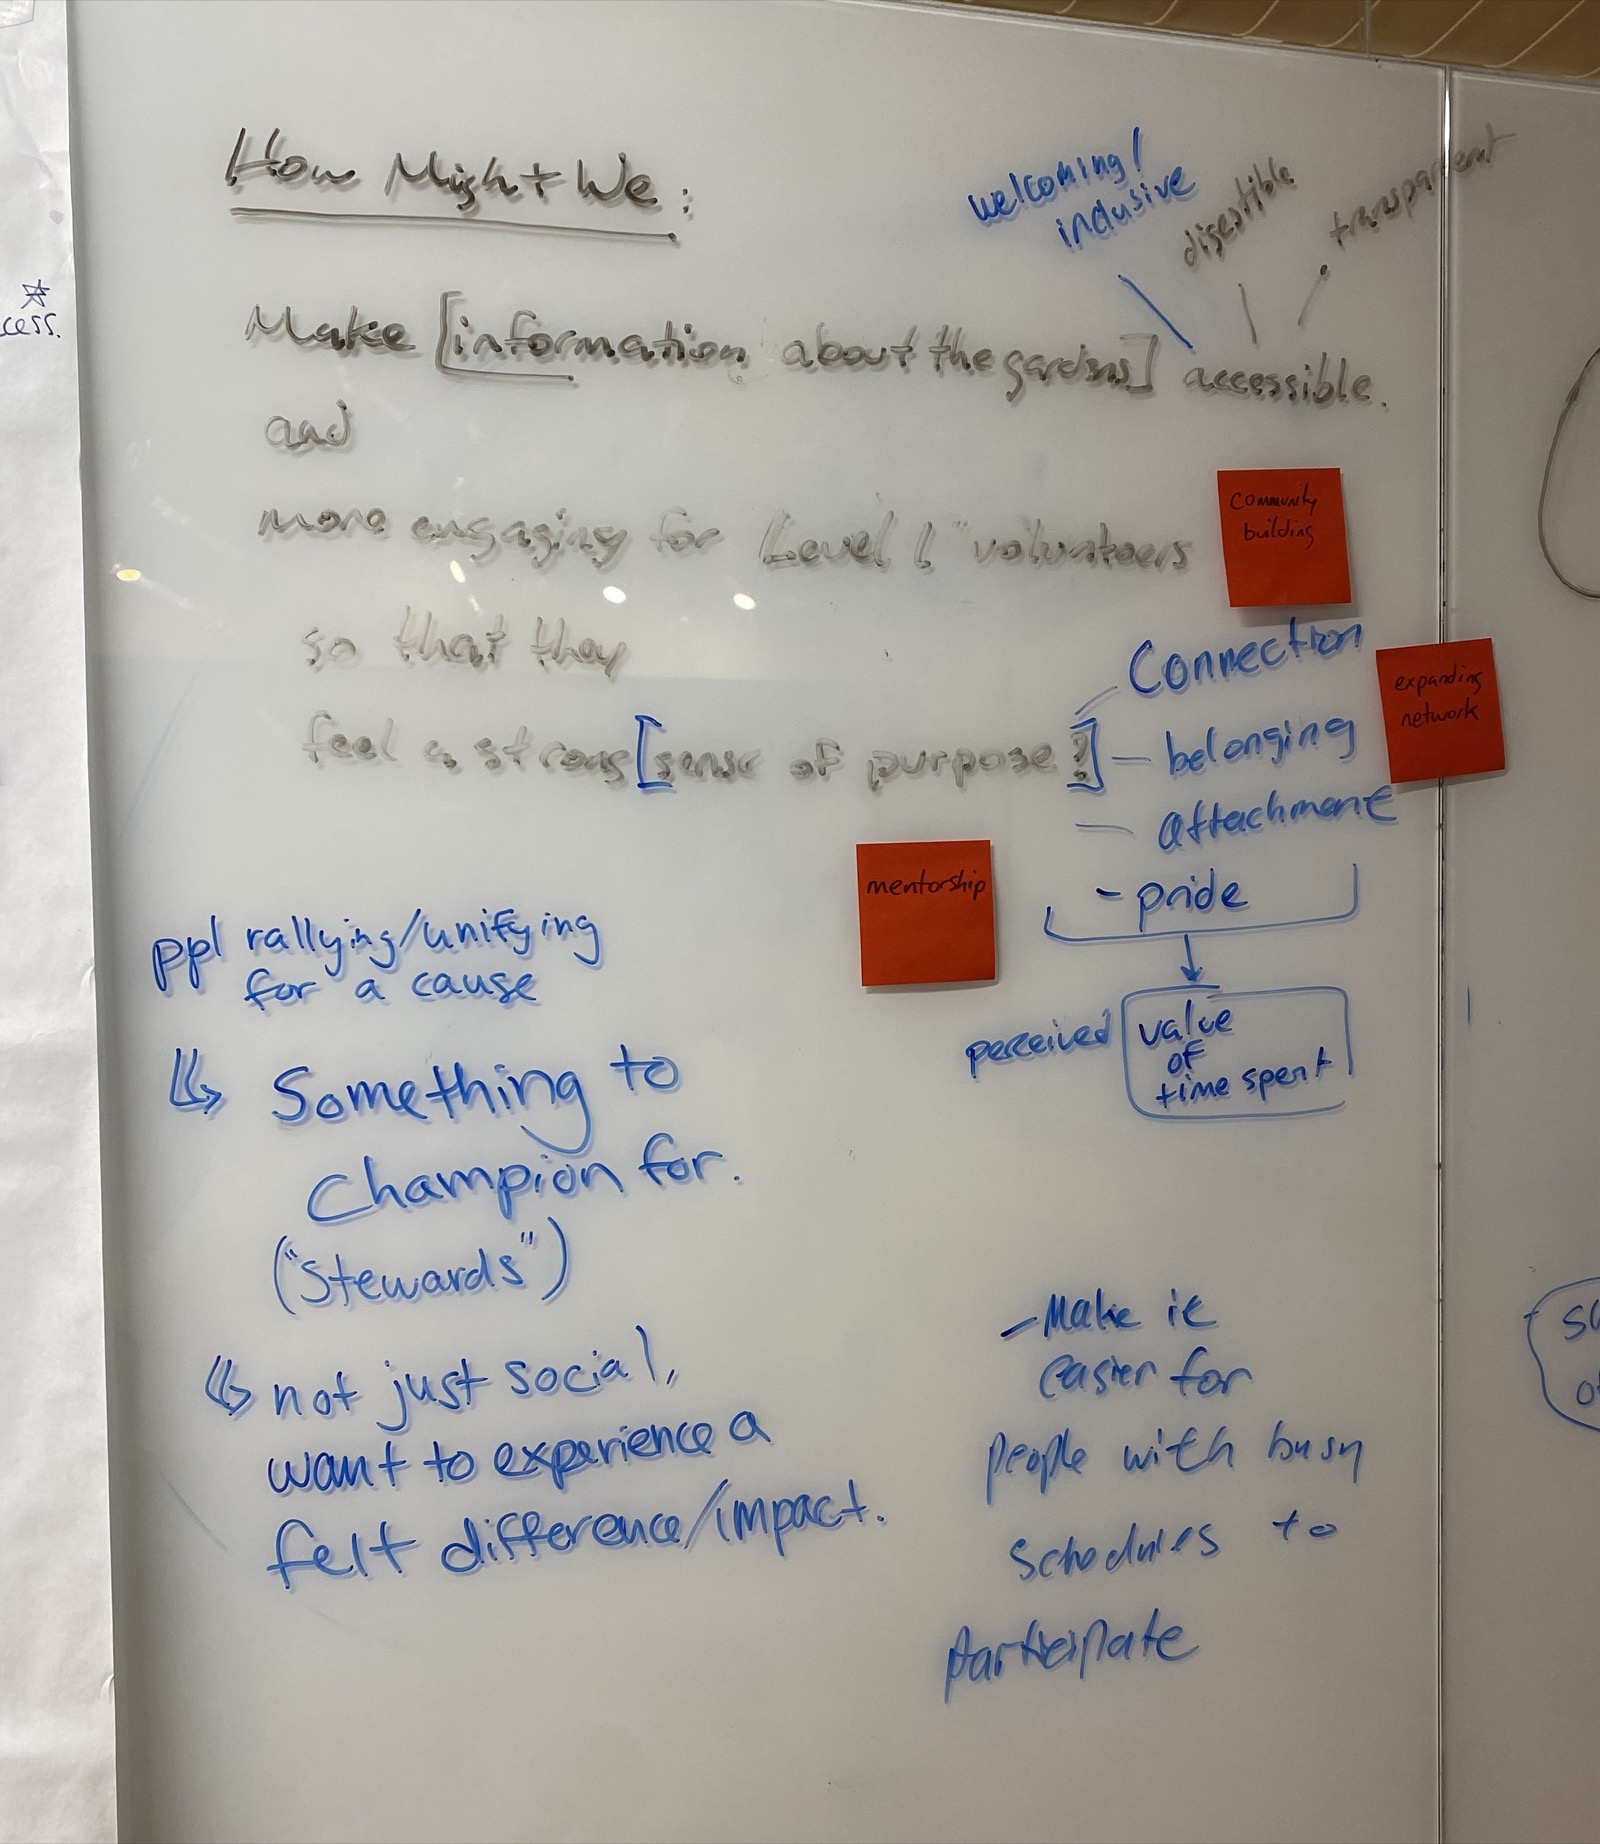 How Might We:
welcoming/
inclusive
digestible
transparent
cess.
Make [information about the gardens] accessible.
and
more engaging for Level 1" volunteers
so that they
feel a strong [sense of purpose?]
community
building
Connection
- belonging
- attachment
- pride
expanding
network
mentorship
perceived
value
of
time spent
ppl rallying/unifying
for a cause
Something to
Champion for.
("Stewards")
not just social,
want to experience a
felt difference/impact.
- Make it
easier for
people with busy
schedules to
participate